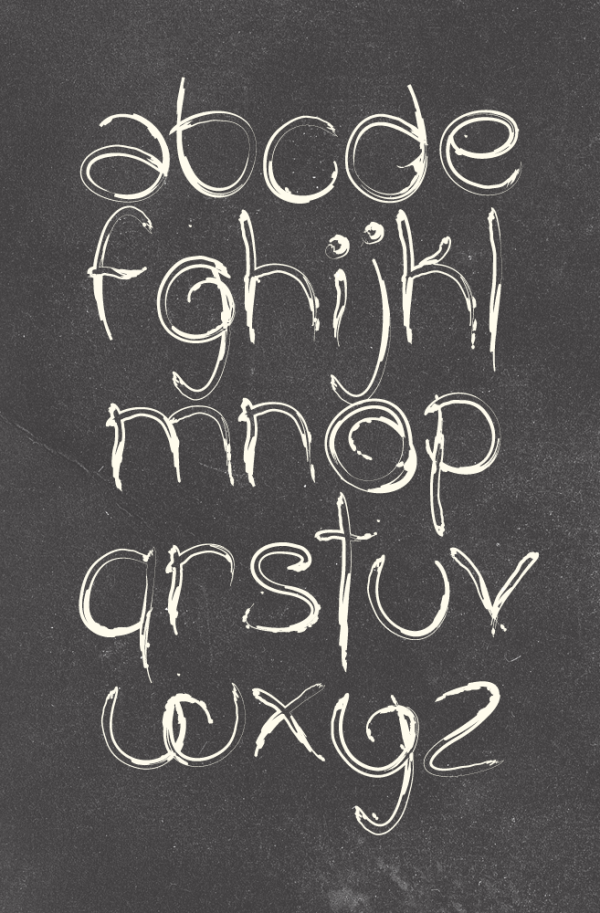 abcde
fghijkl
mnop
qrstuv
wxyz